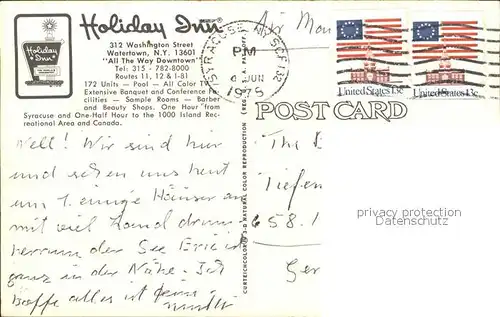 Holiday Inn®
312 Washington Street
Watertown, N.Y. 13601
"All The Way Downtown"
Tel: 315 - 782-8000
Routes 11, 12 & I-81
172 Units — Pool — All Color
Extensive Banquet and Conference
cilities — Sample Rooms — Barber
and Beauty Shops. One Hour from
Syracuse and One-Half Hour to the 1000 Island Rec-
reational Area and Canada.
Holiday Inn
Air
SYRACUSE N
PM
JUN
United States 13c
United States 13c
POST CARD
CURTEICHCOLOR® 3-D NATURAL COLOR REPRODUCTION
Well! Wir sind hier
und sehen uns heut
um 1. einige Häuser an
mit viel Land drum
herrum der See Erie ist
ganz in der Nähe. Ich
hoffe alles ist
The
Tiefen
658.1
Ger
privacy protection
www.oldthing.de